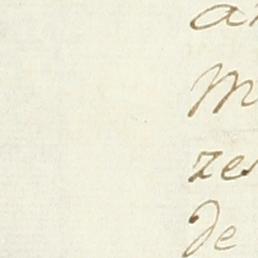 a
m
zes
de